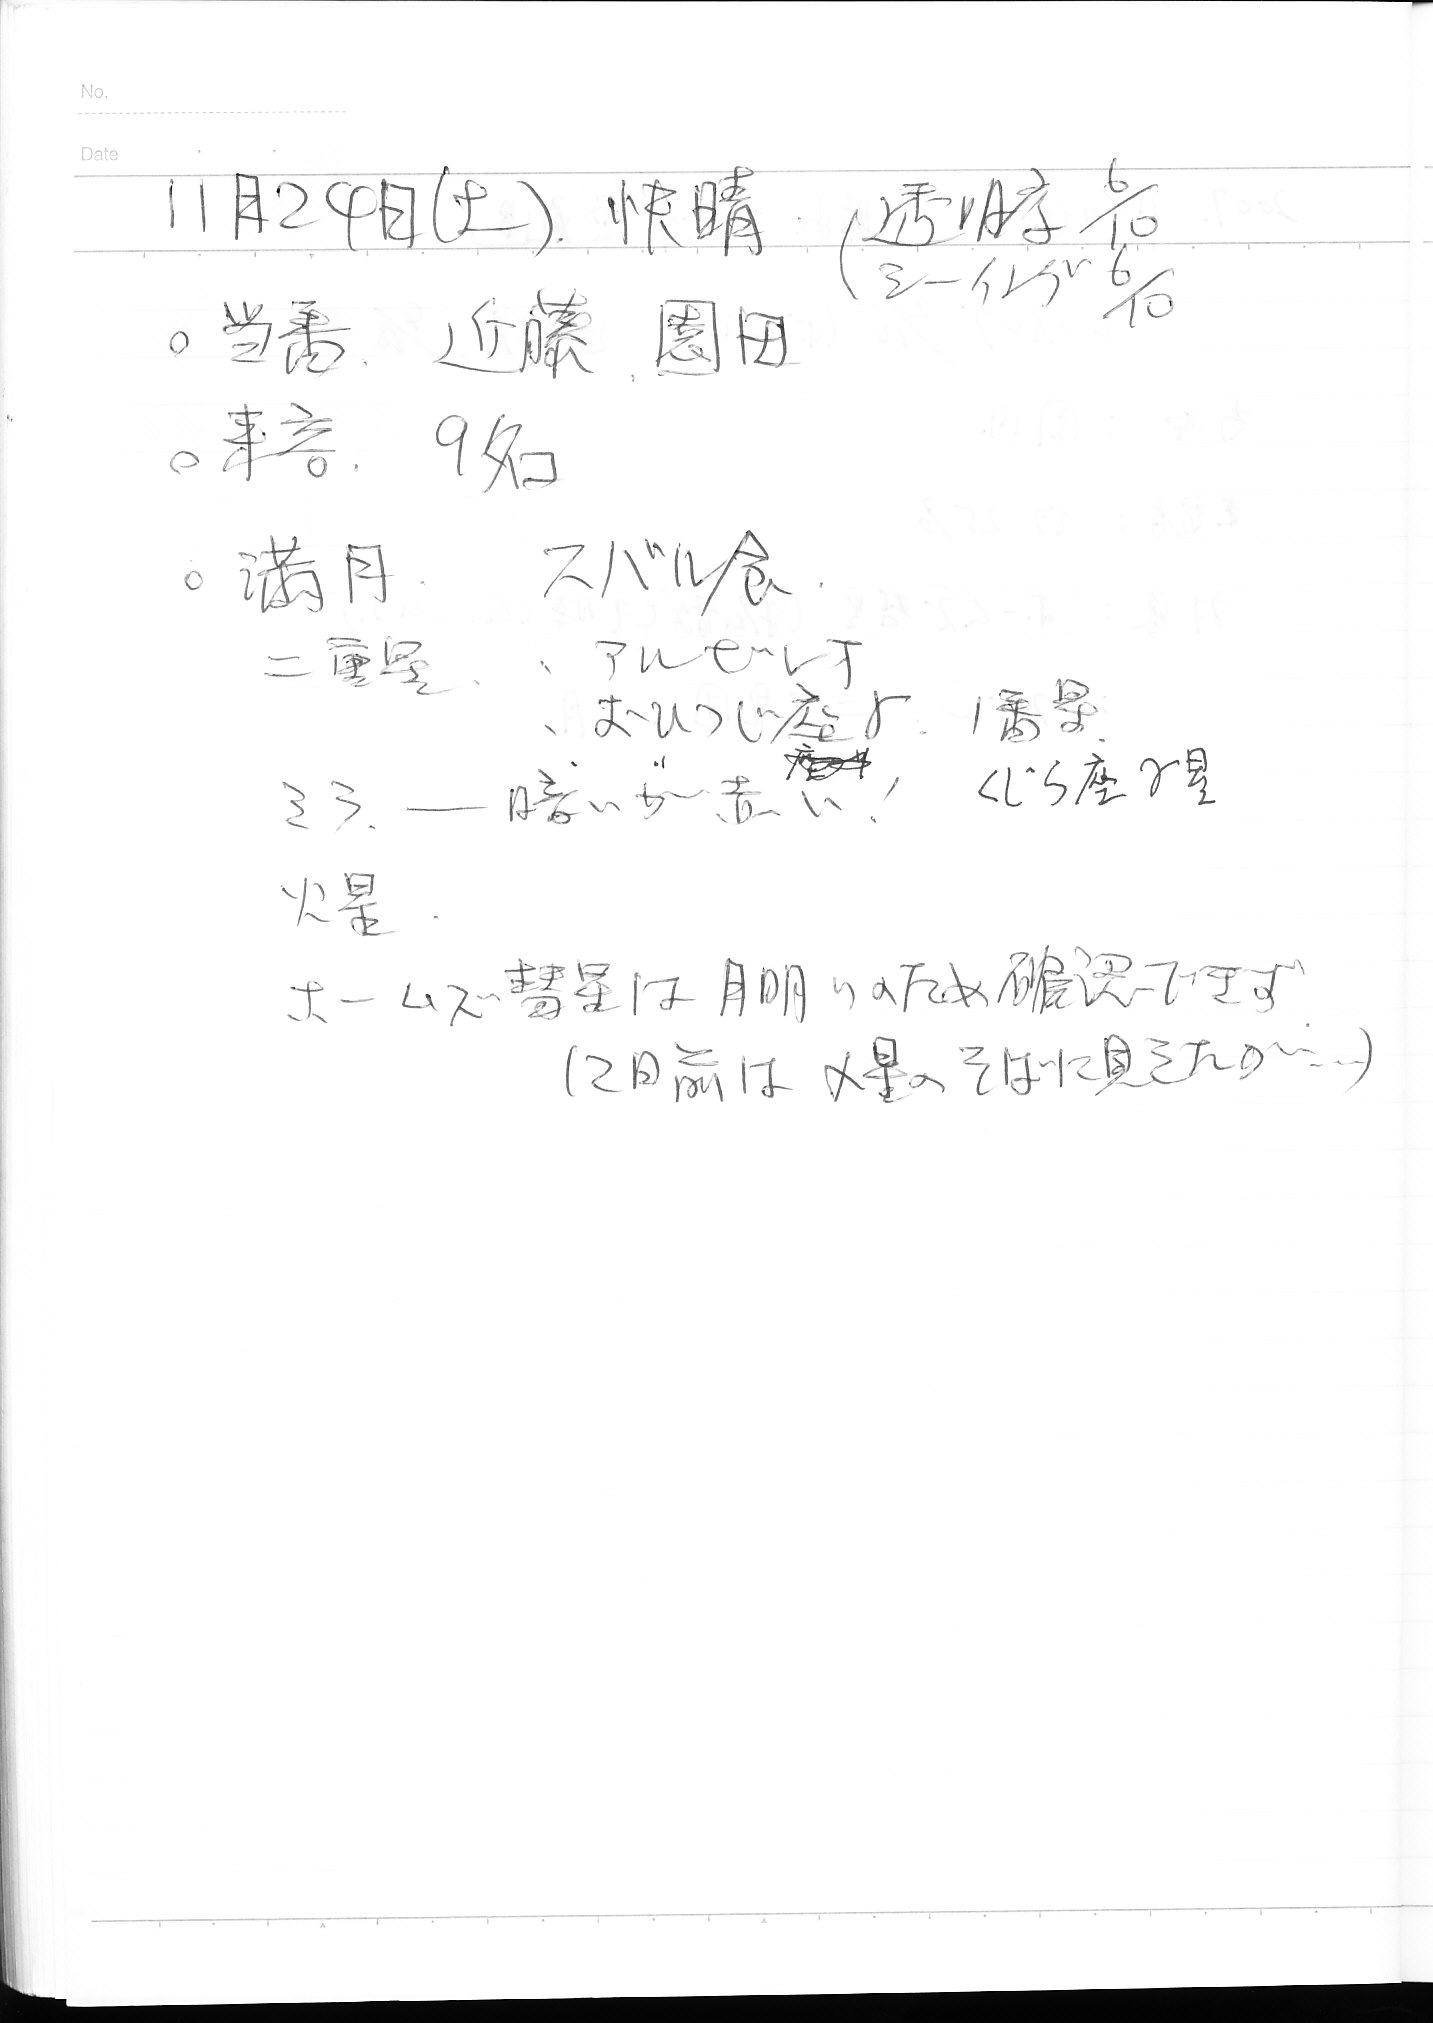 No.
Date
11月24日(土). 快晴. (透明度 6/10
シーイング 6/10
○ 当番. 近藤, 園田
○ 来客. 9名
○ 満月. スバル食.
二重星. 、アルビレオ
、おひつじ座γ. 1番星.
ミラ. — 暗いが赤い! くじら座γ星
火星.
ホームズ彗星は月明りのため確認できず.
(2日前はα星のそばに見えたが……)